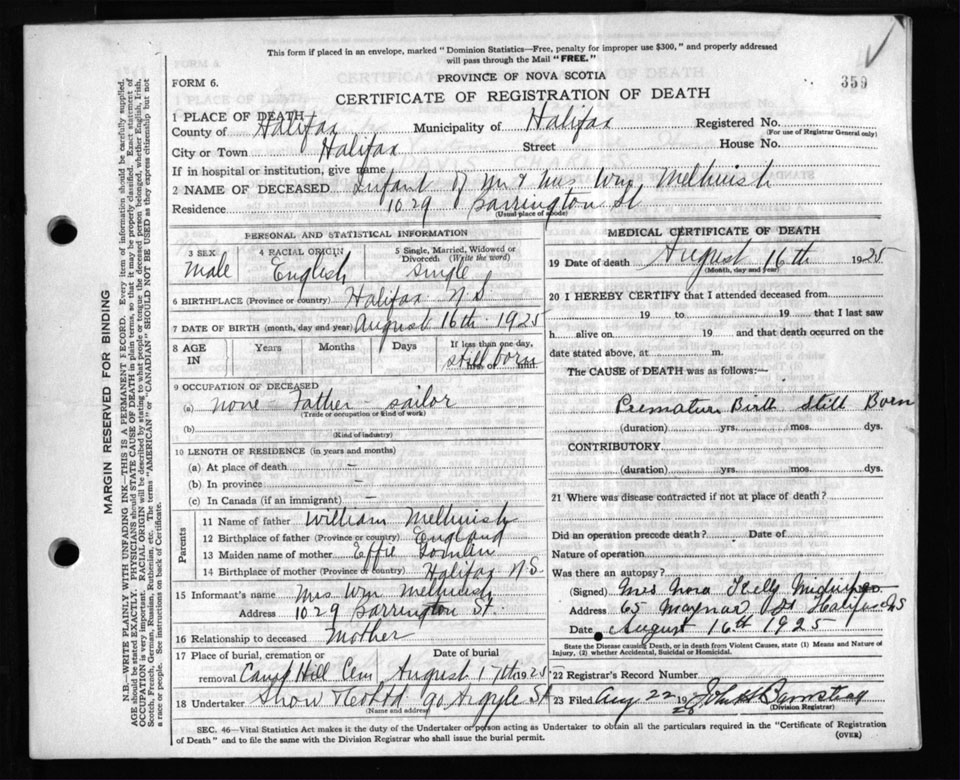 This form if placed in an envelope, marked "Dominion Statistics—Free, penalty for improper use $300," and properly addressed
will pass through the Mail "FREE."
359
FORM 6.
PROVINCE OF NOVA SCOTIA
CERTIFICATE OF REGISTRATION OF DEATH
1 PLACE OF DEATH
County of Halifax Municipality of Halifax Registered No.
(For use of Registrar General only)
City or Town Halifax Street House No.
If in hospital or institution, give name
2 NAME OF DECEASED Infant of Mr & Mrs Wm, Melhuish
Residence 1029 Barrington St
(Usual place of abode)
PERSONAL AND STATISTICAL INFORMATION
3 SEX Male 4 RACIAL ORIGIN English 5 Single, Married, Widowed or Divorced: (Write the word) single
6 BIRTHPLACE (Province or country) Halifax N S
7 DATE OF BIRTH (month, day and year) August 16th 1925
8 AGE IN Years Months Days If less than one day, hrs. or min. still born
9 OCCUPATION OF DECEASED
(a) none - Father - sailor
(Trade or occupation or kind of work)
(b)
(Kind of industry)
10 LENGTH OF RESIDENCE (in years and months)
(a) At place of death –
(b) In province –
(c) In Canada (if an immigrant) –
Parents
11 Name of father William Melhuish
12 Birthplace of father (Province or country) England
13 Maiden name of mother Effie
14 Birthplace of mother (Province or country) Halifax N S
15 Informant's name Mrs Wm Melhuish
Address 1029 Barrington St.
16 Relationship to deceased Mother
17 Place of burial, cremation or removal Camp Hill Cem Date of burial August 17th 1925
18 Undertaker Snow & Co Ltd 90 Argyle St
(Name and address)
MEDICAL CERTIFICATE OF DEATH
19 Date of death August 16th 1925
(Month, day and year)
20 I HEREBY CERTIFY that I attended deceased from
19 to 19 that I last saw
h alive on 19 and that death occurred on the
date stated above, at m.
The CAUSE of DEATH was as follows:—
Premature Birth Still Born
(duration) yrs. mos. dys.
CONTRIBUTORY
(duration) yrs. mos. dys.
21 Where was disease contracted if not at place of death?
Did an operation precede death? Date of
Nature of operation
Was there an autopsy?
(Signed) Mrs Nora Kelly Midwife
Address 65 Maynard St Halifax NS
Date August 16th 1925
State the Disease causing Death, or in death from Violent Causes, state (1) Means and Nature of
Injury, (2) whether Accidental, Suicidal or Homicidal.
22 Registrar's Record Number
23 Filed Aug 22 19
(Division Registrar)
SEC. 46—Vital Statistics Act makes it the duty of the Undertaker or person acting as Undertaker to obtain all the particulars required in the "Certificate of Registration
of Death" and to file the same with the Division Registrar who shall issue the burial permit.
(OVER)
MARGIN RESERVED FOR BINDING
N.B.—WRITE PLAINLY WITH UNFADING INK—THIS IS A PERMANENT RECORD. Every item of information should be carefully supplied.
AGE should be stated EXACTLY. PHYSICIANS should STATE CAUSE OF DEATH in plain terms, so that it may be properly classified. Exact statement of
OCCUPATION is very important. RACIAL ORIGIN will be described by stating to what people or tongue the deceased person belonged, whether English, Irish,
Scotch, French, German, Russian, Ruthenian, etc. The terms "AMERICAN" or "CANADIAN" SHOULD NOT BE USED as they express citizenship but not
a race or people. See instructions on back of Certificate.